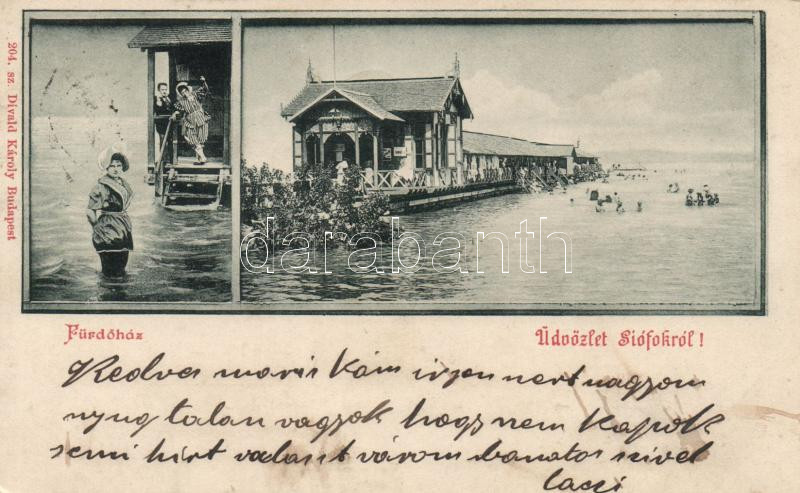 204. sz. Divald Károly Budapest
darabanth
Fürdőház
Üdvözlet Siófokról!
Kedves maris Kám irjon mert nagyon
nyugtalan vagyok hogy nem kapok
semi hírt valast várom banatos szivel
laczi